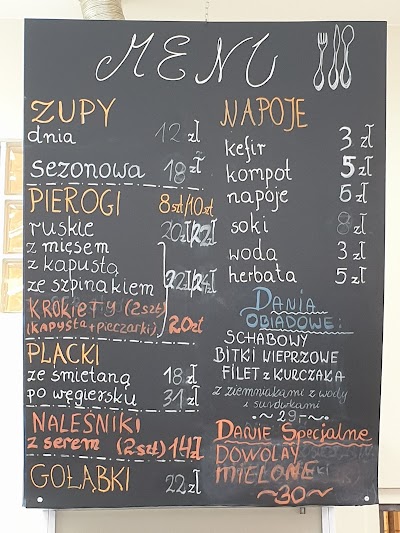 MENU
ZUPY
dnia 12 zł
sezonowa 18 zł
PIEROGI 8szt/10szt
ruskie 20zł/22zł
z mięsem
z kapustą
ze szpinakiem 22zł/24zł
KROKIETY (2szt)
(kapusta + pieczarki) 20zł
PLACKI
ze śmietaną 18 zł
po węgiersku 31 zł
NALEŚNIKI
z serem (2szt) 14zł
GOŁĄBKI 22 zł
NAPOJE
kefir 3 zł
kompot 5 zł
napóje 6 zł
soki 8 zł
woda 3 zł
herbata 5 zł
DANIA
OBIADOWE:
SCHABOWY
BITKI WIEPRZOWE
FILET z KURCZAKA
z ziemniakami z wody
i surówkami
~ 29,- ~
DANIE Specjalne
DOWOLAY
MIELONE
~30~